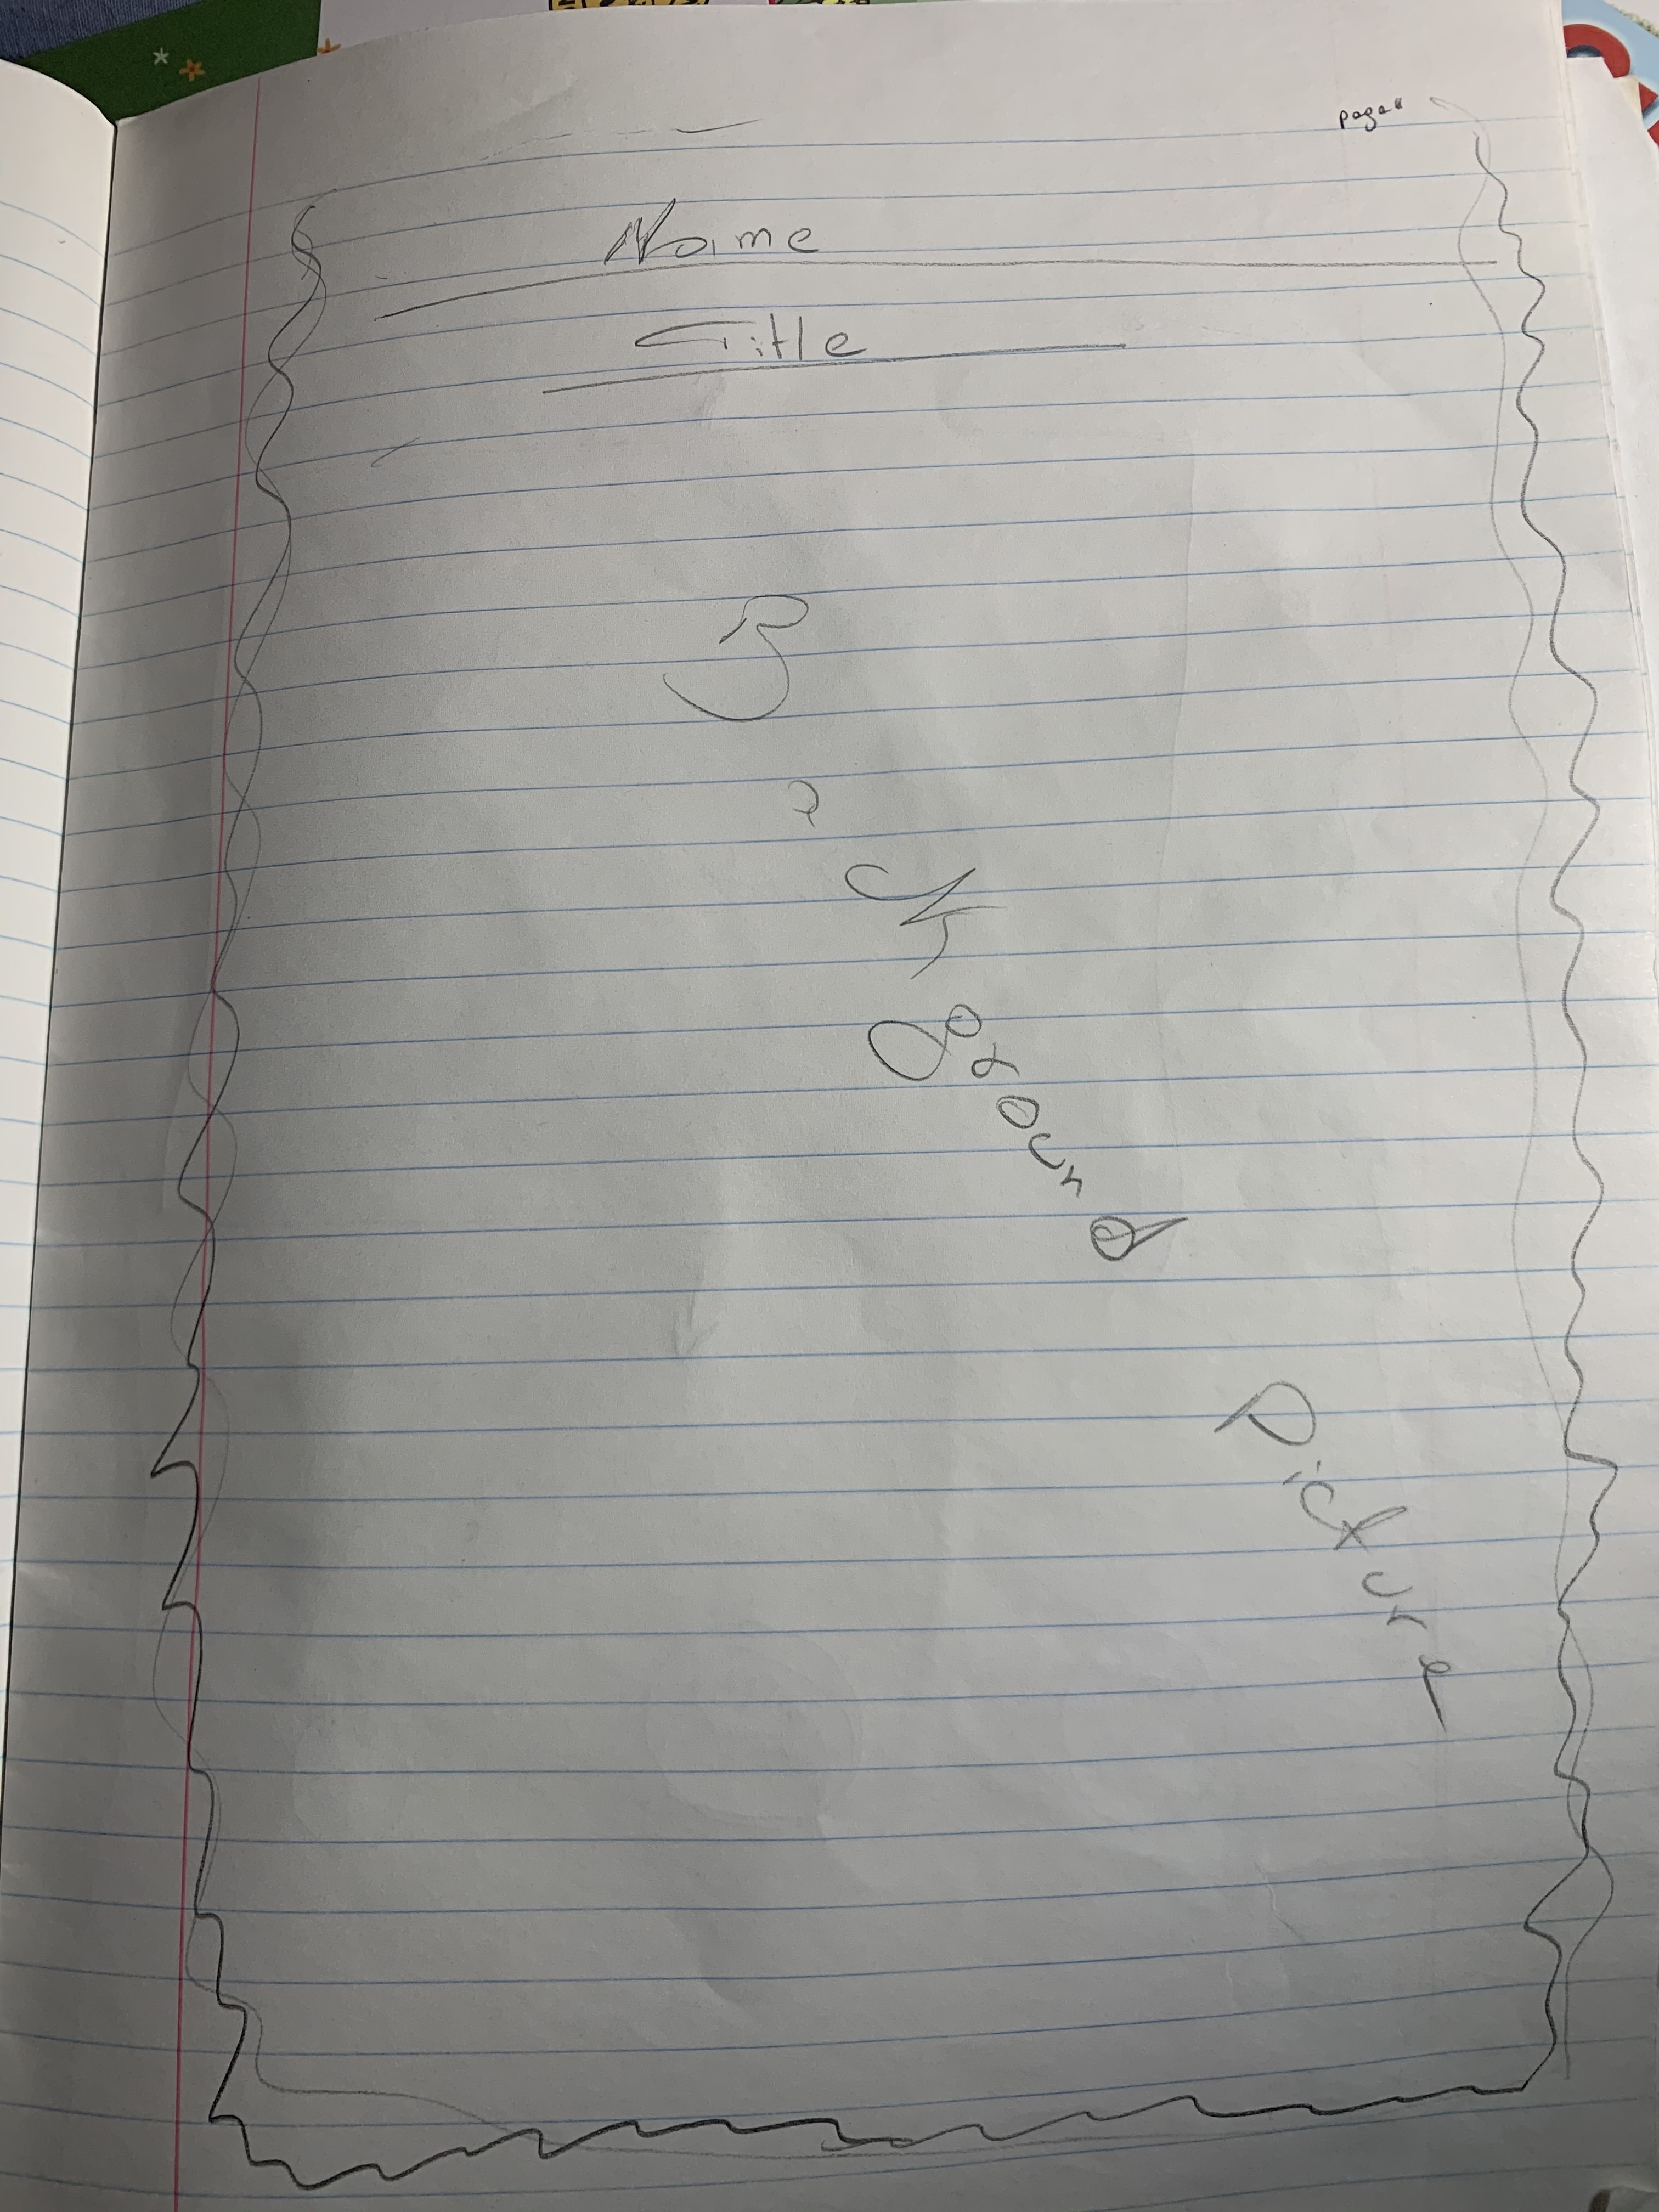 page"
Name
Title
Background
Picture